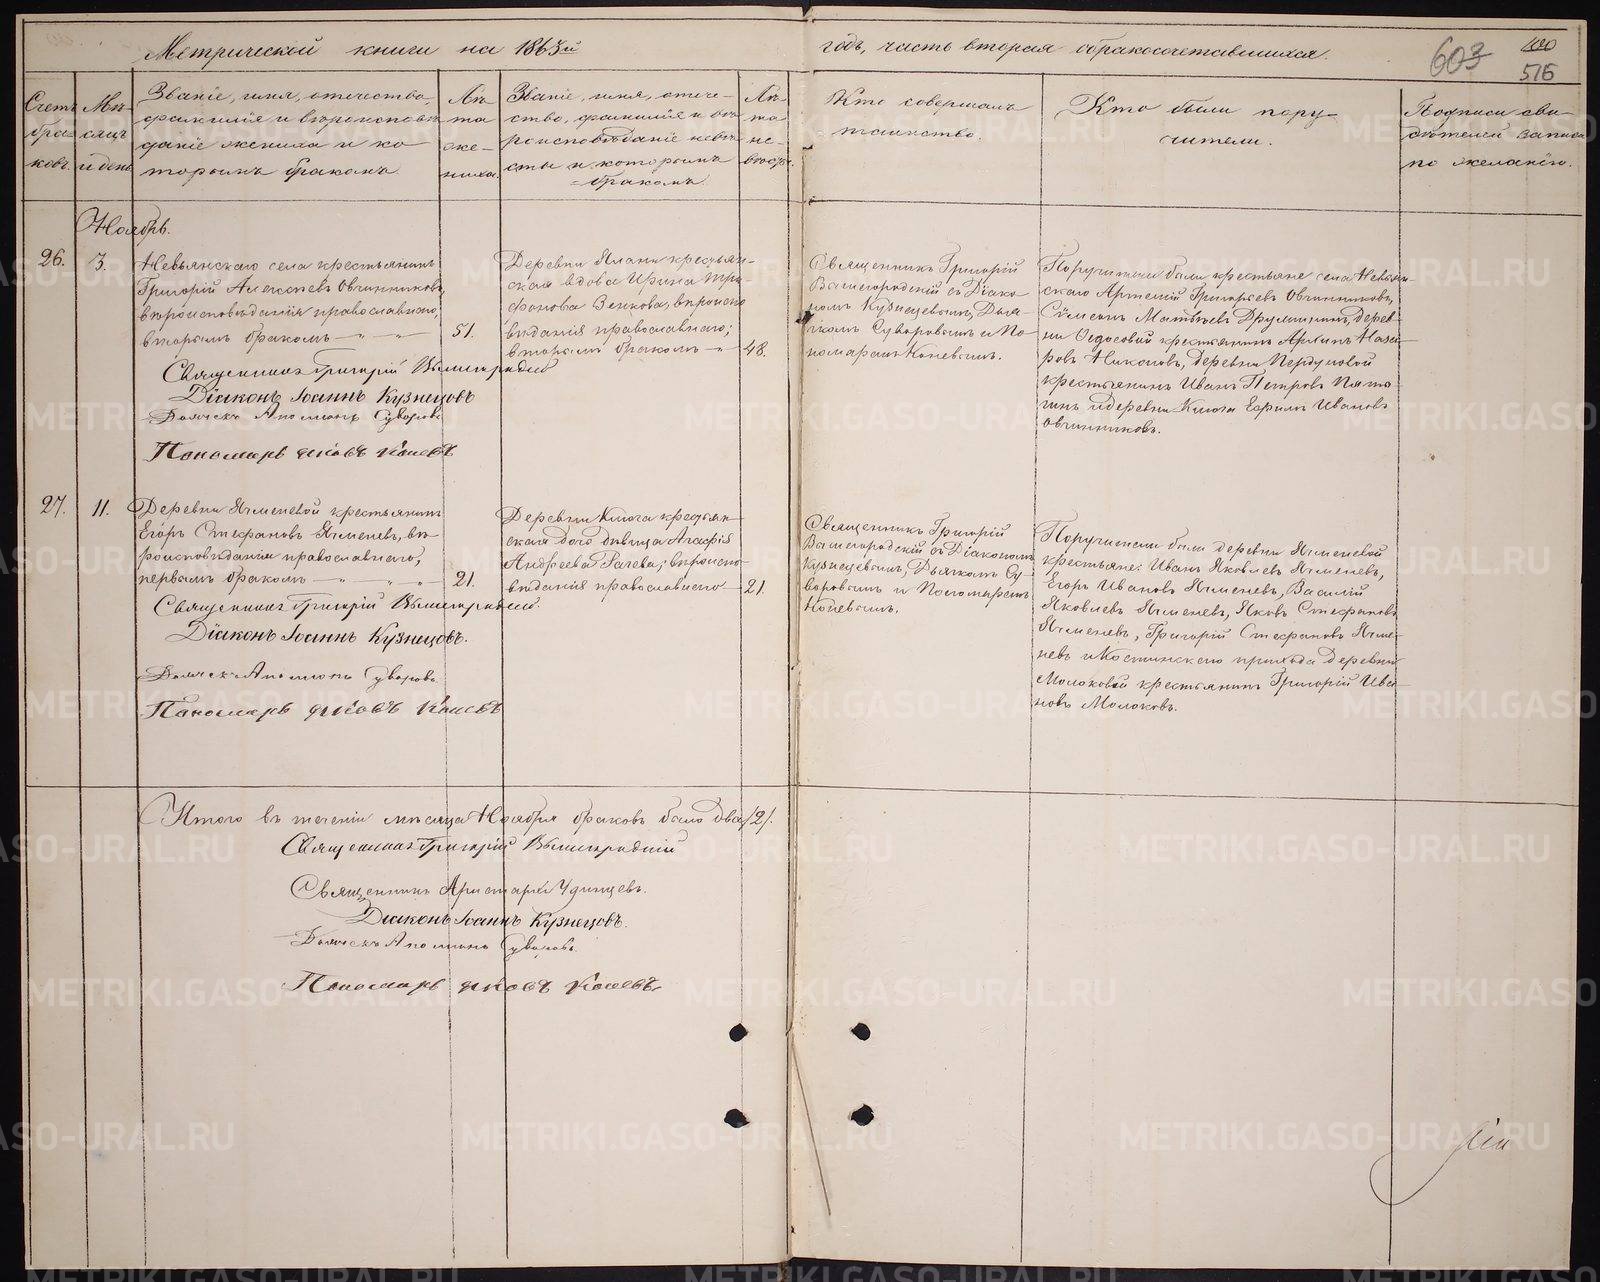 Метрической книги на 1863й
годъ, часть вторая о бракосочетавшихся.
603
516
Счетъ браковъ.
Мѣсяцъ и день
Званіе, имя, отечество,
фамилія и вѣроисповѣ-
даніе жениха и ко-
торымъ бракомъ.
Лѣта жениха.
Званіе, имя, отече-
ство, фамилія и вѣ-
роисповѣданіе невѣ-
сты и которымъ
бракомъ.
Лѣта невѣсты.
Кто совершалъ
таинство.
Кто были пору-
чители.
Подписи сви-
дѣтелей записи
по желанію.
Ноябрь.
26.
3.
Невьянскаго села крестьянинъ
Григорій Алексѣевъ Овчинниковъ,
вѣроисповѣданія православнаго,
вторымъ бракомъ
51.
Священникъ Григорій Вышегородскій
Діаконъ Іоаннъ Кузнецовъ
Дьячекъ Аполлонъ Суворовъ
Пономарь Яковъ Коневъ
Деревни Ялани крестьян-
ская вдова Ирина Три-
фонова Зенкова, вѣроиспо-
вѣданія православнаго;
вторымъ бракомъ
48.
Священникъ Григорій
Вышегородскій съ Діако-
номъ Кузнецовымъ, Дьяч-
комъ Суворовымъ и По-
номаремъ Коневымъ.
Поручители были крестьяне села Невьян-
скаго Артемій Григорьевъ Овчинниковъ,
Сѵмеонъ Матвѣевъ, дерев-
ни Ѳедосовой крестьянинъ Наза-
ровъ Никоновъ, деревни
крестьянинъ Иванъ Петровъ
и деревни Ключа Ефимъ Ивановъ
Овчинниковъ.
27.
11.
Деревни Ячменевой крестьянинъ
Егоръ Стефановъ Ячменевъ, вѣ-
роисповѣданія православнаго,
первымъ бракомъ
21.
Священникъ Григорій Вышегородскій.
Діаконъ Іоаннъ Кузнецовъ.
Дьячекъ Аполлонъ Суворовъ
Пономарь Яковъ Коневъ
Деревни Ключа крестьян-
ская дочь дѣвица Агафія
Андреева Рачева; вѣроиспо-
вѣданія православнаго
21.
Священникъ Григорій
Вышегородскій съ Діакономъ
Кузнецовымъ, Дьячкомъ Су-
воровымъ и Пономаремъ
Коневымъ.
Поручители были деревни Ячменевой
крестьяне: Иванъ Яковлевъ Ячменевъ,
Егоръ Ивановъ Ячменевъ, Василій
Яковлевъ Ячменевъ, Яковъ Стефановъ
Ячменевъ, Григорій Стефановъ Ячме-
невъ и Костинскаго прихода деревни
Молоковой крестьянинъ Григорій Ива-
новъ Молоковъ.
Итого въ теченіи мѣсяца Ноября браковъ было два /2/.
Священникъ Григорій Вышегородскій
Священникъ Аристархъ Удинцевъ.
Діаконъ Іоаннъ Кузнецовъ.
Дьячекъ Аполлонъ Суворовъ.
Пономарь Яковъ Коневъ
METRIKI.GASO-URAL.RU